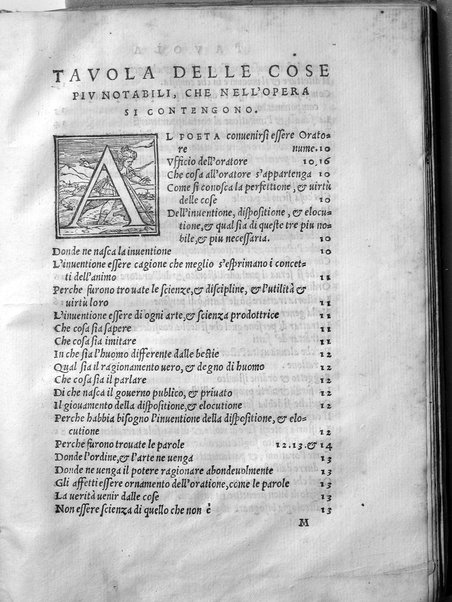 TAVOLA DELLE COSE
PIV NOTABILI, CHE NELL'OPERA
SI CONTENGONO.
AL POETA conuenirsi essere Orato-
re nume. 10
Vfficio dell'oratore 10,16
Che cosa all'oratore s'appartenga 10
Come si conosca la perfettione, & uirtù
delle cose 10
Dell'inuentione, dispositione, & elocu-
tione, & qual sia di queste tre piu no-
bile, & piu necessaria. 10
Donde ne nasca la inuentione 10
L'inuentione essere cagione che meglio s'esprimano i concet-
ti dell'animo 11
Perche furono trouate le scienze, & discipline, & l'utilità &
uirtù loro 11
L'inuentione essere di ogni arte, & scienza prodottrice 11
Che cosa sia sapere 11
Che cosa sia imitare 11
In che sia l'huomo differente dalle bestie 12
Qual sia il ragionamento uero, & degno di huomo 12
Che cosa sia il parlare 12
Di che nasca il gouerno publico, & priuato 12
Il giouamento della dispositione, & elocutione 12
Perche habbia bisogno l'inuentione della dispositione, & elo-
cutione 12
Perche furono trouate le parole 12.13.& 14
Donde l'ordine, & l'arte ne uenga 13
Donde ne uenga il potere ragionare abondeuolmente 13
Gli affetti essere ornamento dell'oratione, come le parole 13
La uerità uenir dalle cose 13
Non essere scienza di quello che non è 13
M